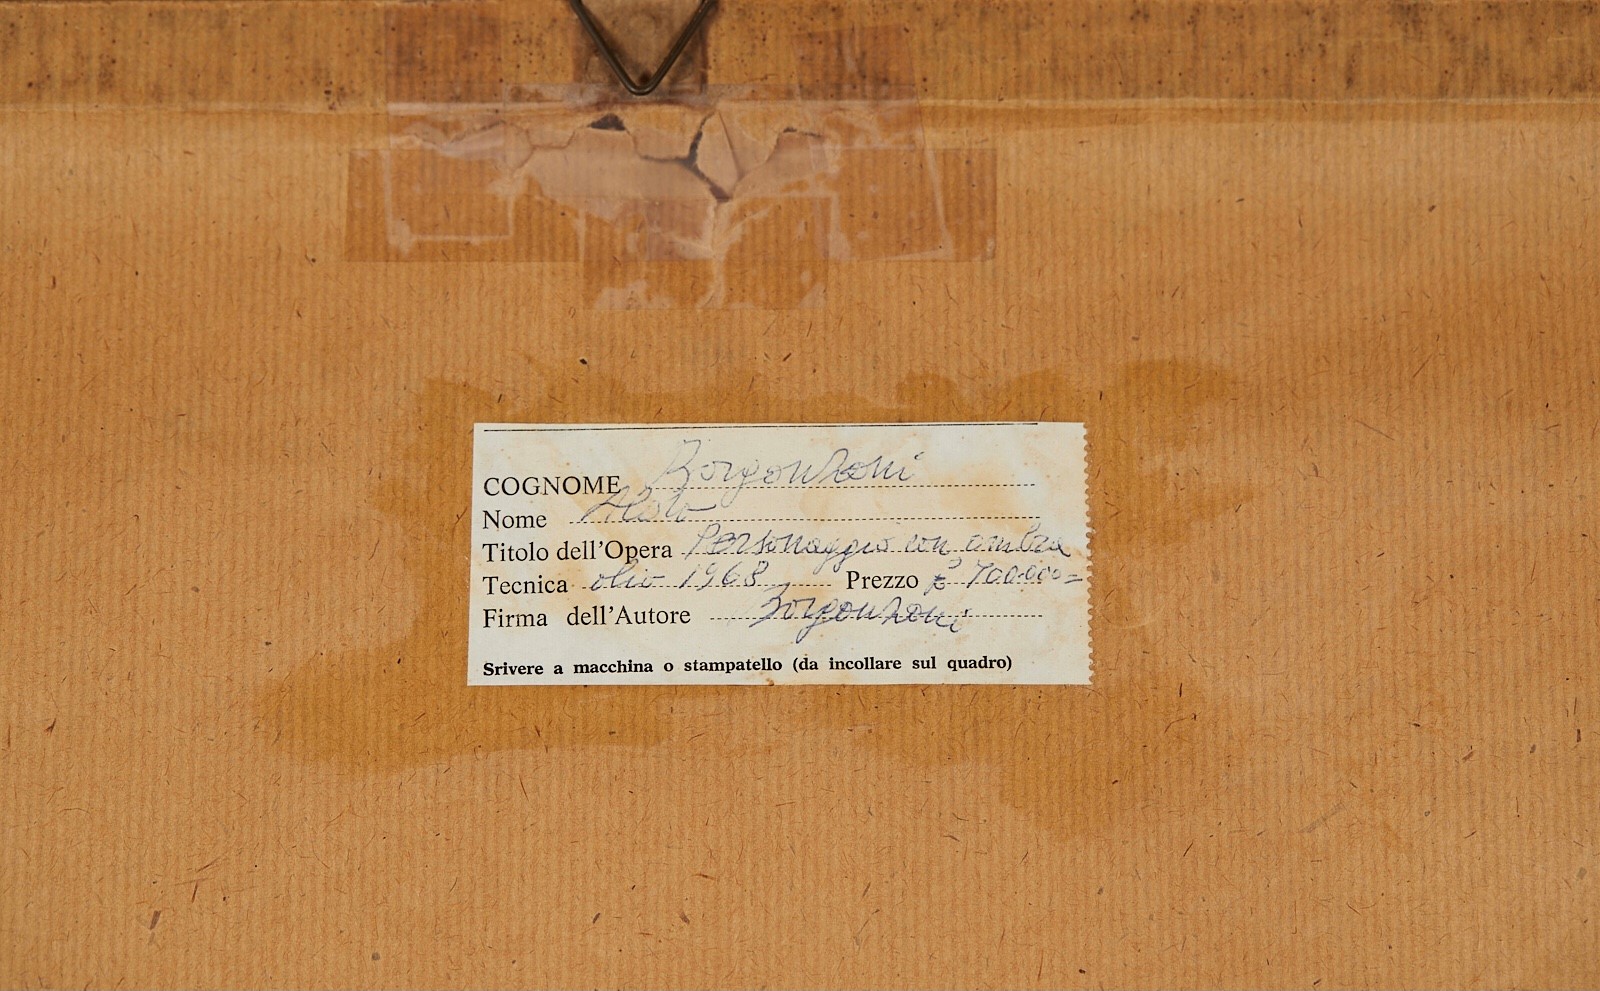 COGNOME Borgonzoni
Nome Aldo
Titolo dell'Opera Personaggio con ombra
Tecnica olio 1968 Prezzo £ 700.000=
Firma dell'Autore Borgonzoni
Srivere a macchina o stampatello (da incollare sul quadro)